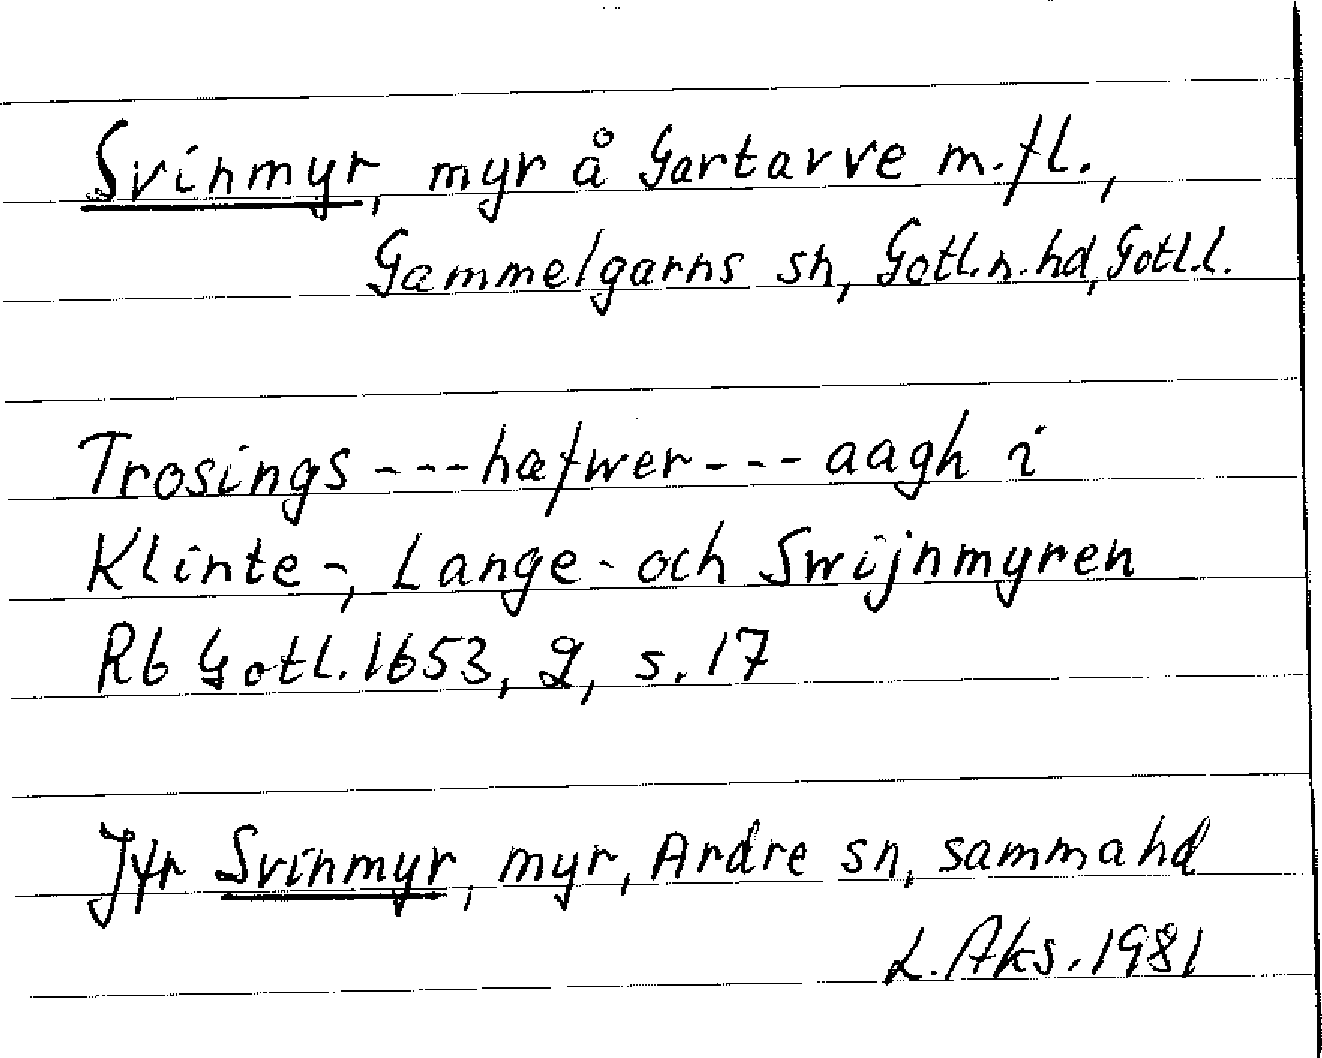 Svinmyr, myr å Gartarve m.fl.,
Gammelgarns sn, Gotl.n.hd, Gotl.l.
Trosings --- hafwer --- aagh i
Klinte-, Lange- och Swijnmyren
Rb Gotl. 1653, 2, s. 17
Jfr Svinmyr, myr, Ardre sn, samma hd
L. Aks. 1981